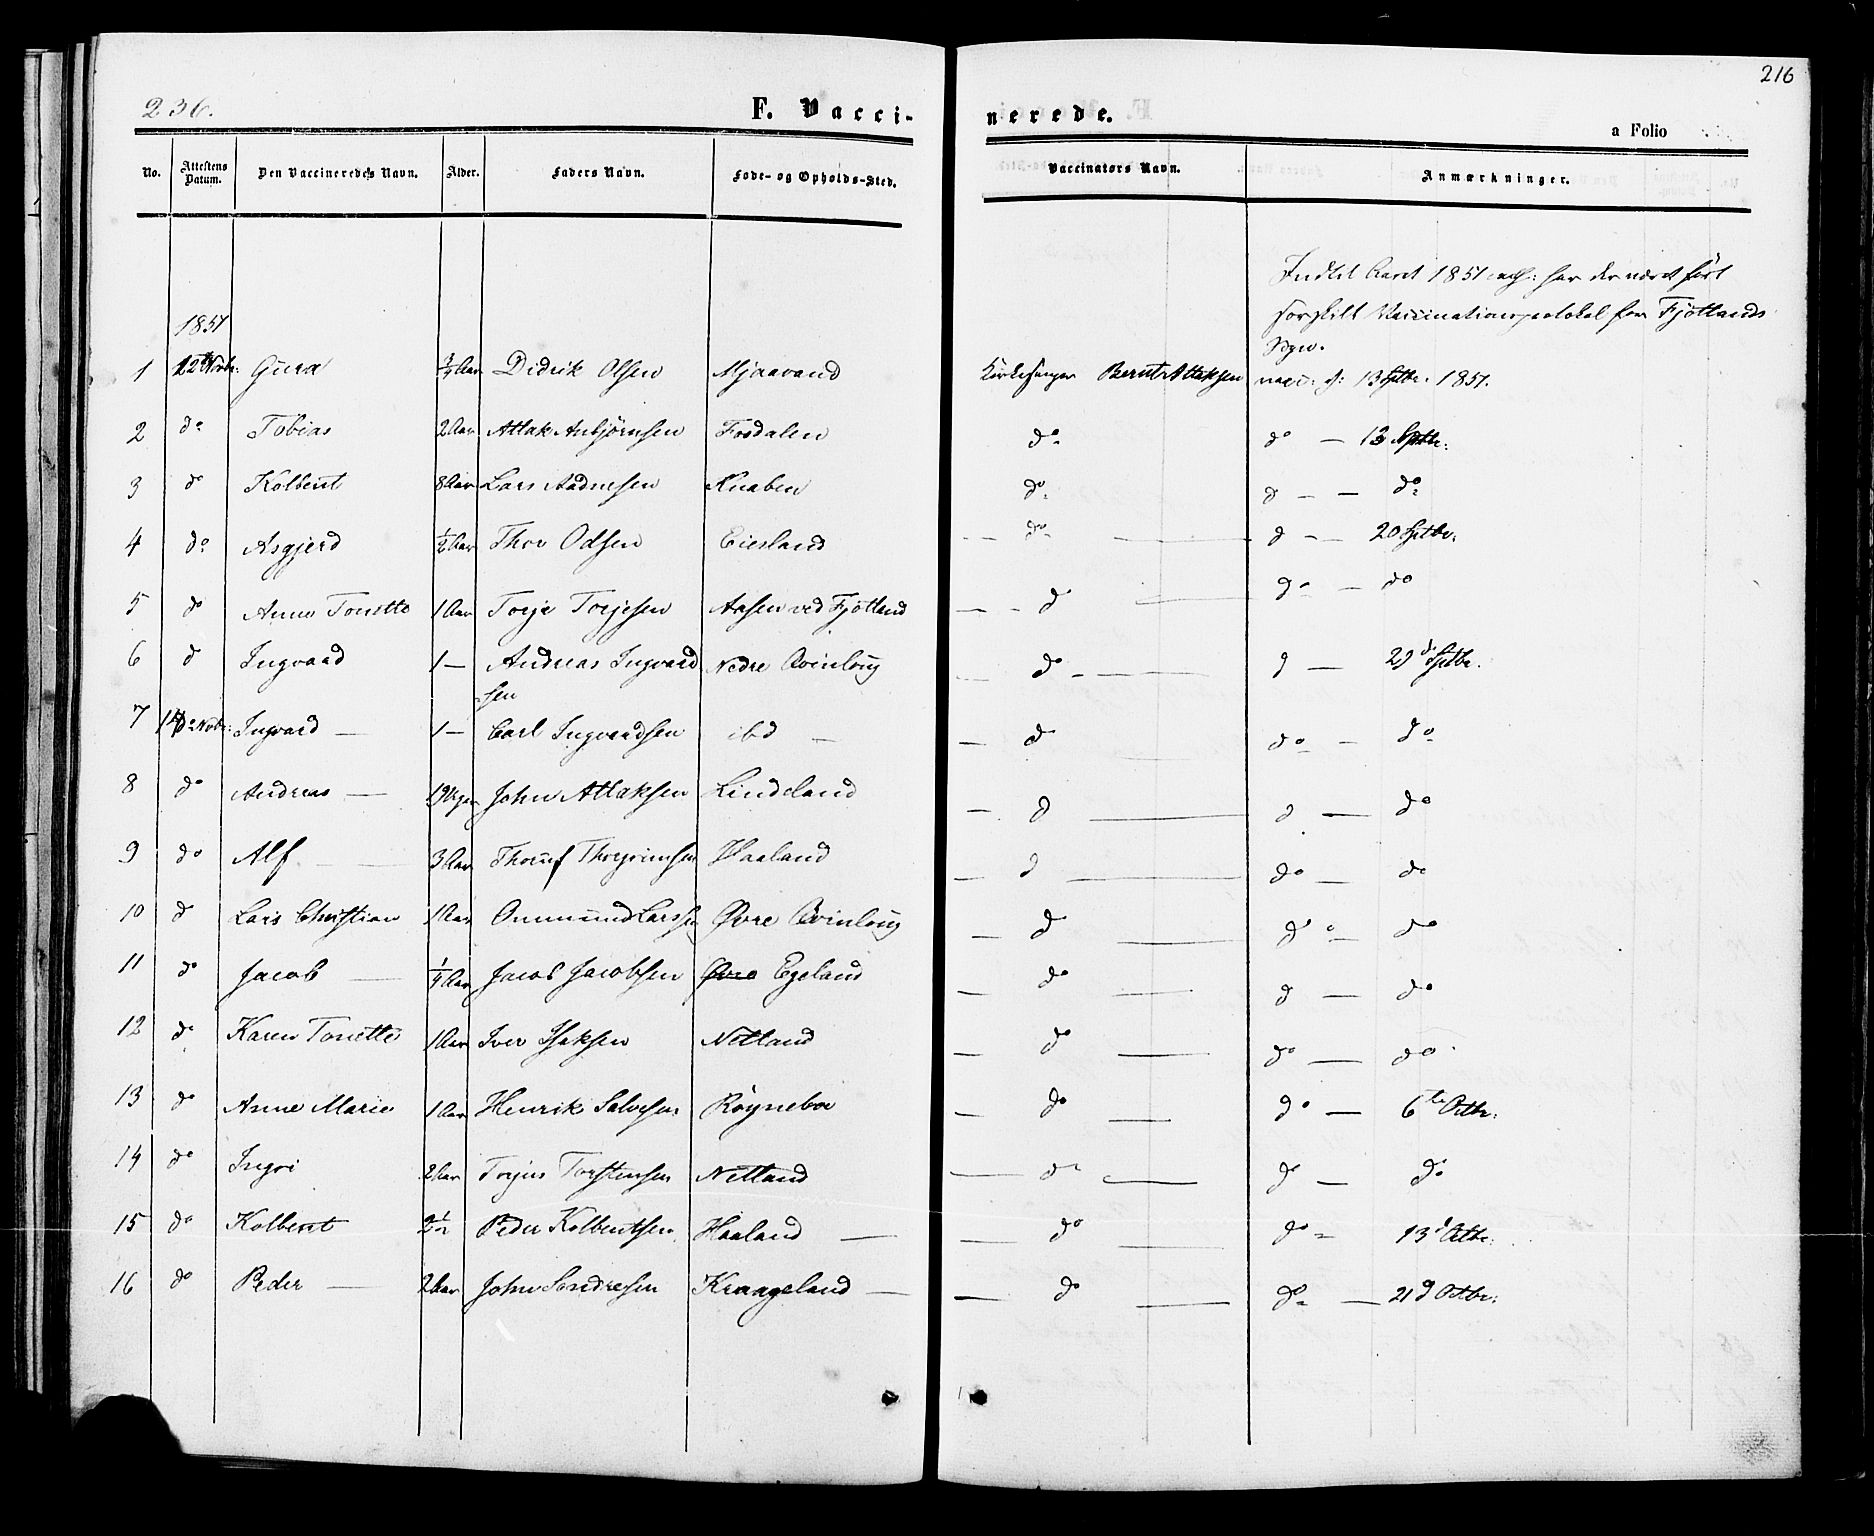 216
236.
F. Vacci-
nerede.
a Folio
No. Attestens Datum. Den Vaccineredes Navn. Alder. Faders Navn. Føde- og Opholds-Sted. Vaccinators Navn. Anmærkninger.
Indtil Aaret 1851 har der været ført
særskilt Vaccinationsprotokol for Fjotlands
Sogn.
1851
1 12 Novbr: Gura 3/4 Aar Didrik Olsen Mjaavand Kirkesanger Bernt Atlaksen vacc: d: 13 Sptbr. 1851.
2 do Tobias 2 Aar Atlak Anbjørnsen Fosdalen do do — 13 Sptbr:
3 do Kolbent 8 Aar Lars Aadnesen Knaben do d — — do
4 do Asgjerd 1/2 Aar Thor Odsen Eiesland do d — — 20 Sptbr:
5 do Anne Tonette 1 Aar Torje Torjesen Aasen ved Fjotland d do — do
6 d Ingvard 1 — Andreas Ingvard Nedre Qvinloug do d — 29 d Sptbr.
sen
7 14 Novbr: Ingvard — 1 — Carl Ingvardsen ibd — d do — do
8 do Andreas — 19 Uger John Atlaksen Lindeland d d — do
9 do Alf 3 Aar Thorgrimsen Haaland d do — do
10 d Lars Christian 1 Aar Ommund Larssen Øvre Qvinloug d do — do
11 do Jacob — 1/4 Aar Jacob Jacobsen Øvre Egeland do d — do
12 do Karen Tonette 1 Aar Iver Isaksen Netland do do — do
13 do Anne Marie 1 Aar Henrik Salvesen Røyneboe do do — 6te Octbr:
14 do Ingri 2 Aar Torjus Torstensen Netland do do — do
15 do Kolbent 2 1/2 Peder Kolbentsen Haaland — do do — 13 d Octbr:
16 do Peder — 2 Aar John Sendresen Kraageland — do do — 21 d Octbr: